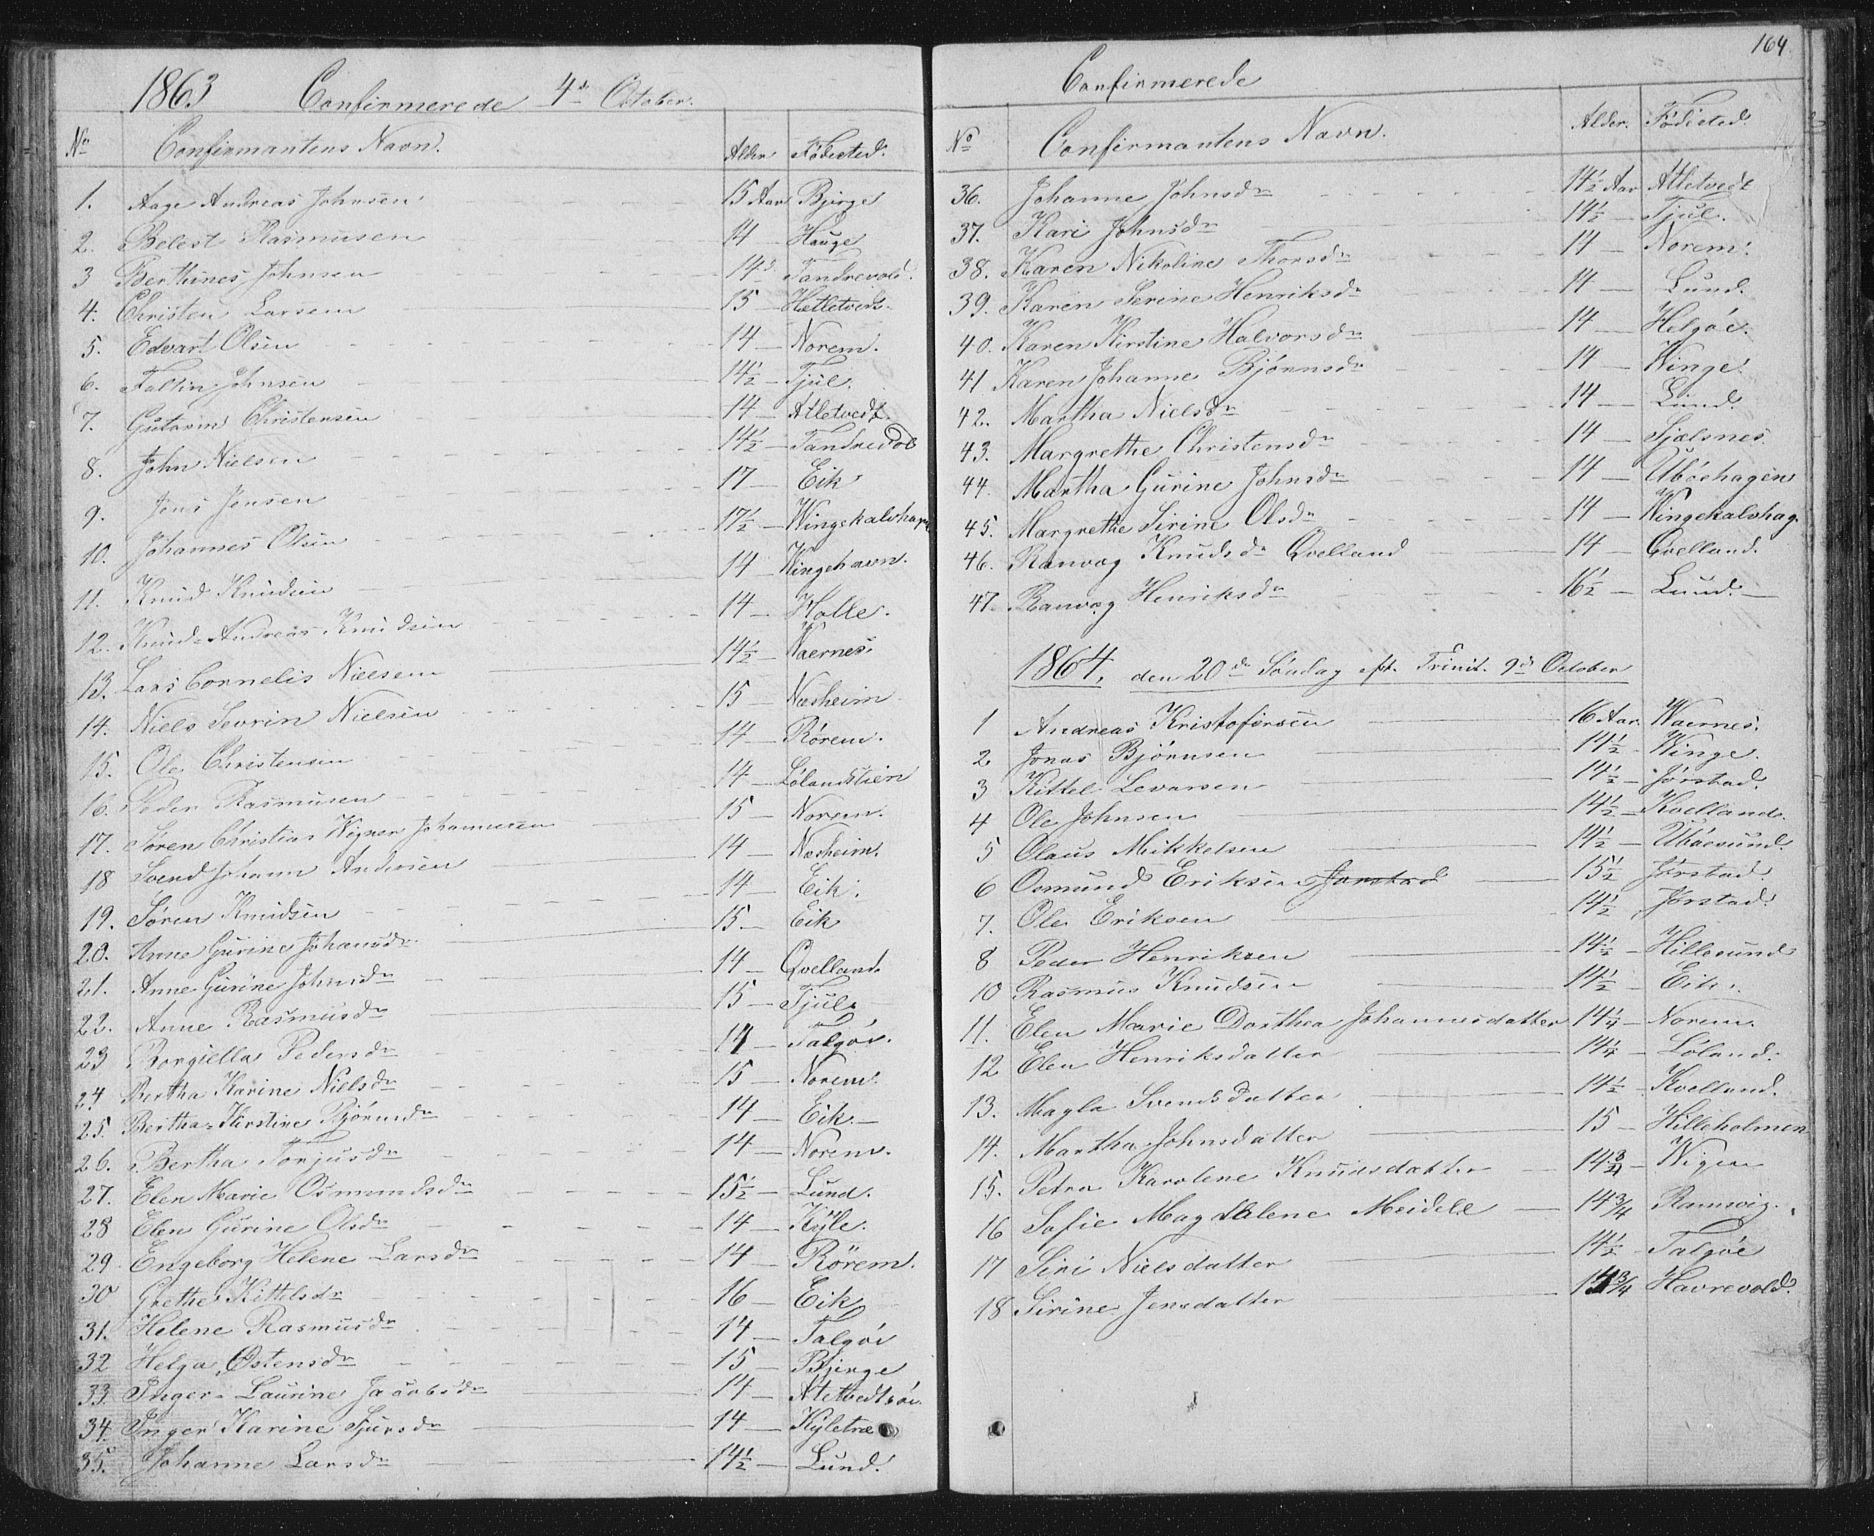 1863 Confirmerede 4de October.
No Confirmantens Navn. Alder Födested.
1. Aage Andreas Johnsen 15 Aar Bjerge
2. Belest Rasmusen 14 — Hauge
3 Berthines Johnsen 14 3/4 Tandrevold.
4. Christen Larsen 15 — Hetletvedt.
5. Edvart Olsen 14 — Norem.
6. Faltin Johnsen 14 1/2 — Tjul.
7. Gutorm Christensen 14 — Atletvedt.
8. John Nielsen 14 1/2 — Tandrevol
9. Jens Jensen 17 — Eik
10. Johannes Olsen 17 1/2 — Wingekalvhagen
11. Knud Knudsen 14 — Wingehavn.
12. Knud Andreas Knudsen 14 — Holle.
13. Lars Cornelis Nielsen 14 1/2 — Waernes
14. Niels Sevrin Nielsen 15 — Næsheim
15. Ole Christensen 14 — Rörem.
16. Peder Rasmusen 14 — Lölandstien
17. Sören Christian Wegner Johannesen 15 — Norem.
18 Svend Johann Andersen 14 — Næsheim.
19. Sören Knudsen 14 — Eik.
20. Anne Gurine Johansdr 15 — Eik
21. Anne Gurine Johnsdr 14 — Qvelland.
22. Anne Rasmusdr 15 — Tjul.
23 Borgiella Pedersdr 14 — Talgöe.
24 Bertha Karine Nielsdr 15 — Norem.
25. Bertha Kirstine Björnsdr 14 — Eik. —
26. Bertha Torjusdr 14 — Norem.
27. Elen Marie Osmundsdr 15 1/2 — Lund.
28 Elen Gurine Olsdr 14 — Kyle.
29. Engeborg Helene Larsdr 14 — Rörem.
30 Grethe Kittelsdr 16 — Eik
31. Helene Rasmusdr 14 — Talgöe
32 Helga Östensdr 15 — Bjerge
33. Inger Laurine Jacobsdr 14 — Atletvedtsöe.
34. Inger Karine Sjursdr 14 — Kyletræ
35. Johanne Larsdr 14 1/2 — Lund.
164.
Confirmerede
No Confirmantens Navn. Alder. Födested.
36. Johanne Johnsdr 14 1/2 Aar Atletvedt
37. Kari Johnsdr 14 1/2 — Tjul.
38. Karen Nikoline Thorsdr 14 — Norem.
39. Karen Serine Henriksdr 14 — Lund.
40. Karen Kirstine Halvorsdr 14 — Helgöe.
41 Karen Johanne Björnsdr 14 — Winge.
42. Martha Nielsdr 14 — Lund.
43. Margrethe Christensdr 14 — Sjælsnes
44. Martha Gurine Johnsdr 14 — Uböehagen
45. Margrethe Sirine Olsdr 14 — Wingekalvhag.
46. Ranvog Knudsdr Qvelland 14 — Qvelland.
47. Ranvog Henriksdr 16 1/2 — Lund. —
1864, den 20de Söndag eft. Trinit. 9de October
1 Andreas Kristofersen 16 Aar. Waernes.
2 Jonas Björnsen 14 1/2 — Winge.
3 Kittel Levarsen 14 1/2 — Jörstad.
4 Ole Johnsen 14 1/2 — Kvelland.
5 Olaus Mikkelsen 14 1/2 — Uböesund.
6 Osmund Eriksen Jorstad 15 1/2 Jörstad.
7. Ole Eriksen 14 1/2 Jörstad.
8 Peder Henriksen 14 1/2 — Hillesund
10 Rasmus Knudsen 14 1/2 — Eik.
11. Elen Marie Dorthea Johannesdatter 14 1/4 — Norem.
12 Elen Henriksdatter 14 1/4 — Löland.
13. Magla Svendsdatter 14 1/2 — Kvelland.
14. Martha Johnsdatter 15 — Hilleholmen
15. Petra Karolene Knudsdatter 14 3/4 — Wigen
16 Sofie Magdalene Meidell 14 3/4 — Ramsvig.
17 Siri Nielsdatter 14 1/2 — Talgöe
18 Sirine Jensdatter 3/4 — Havrevold.